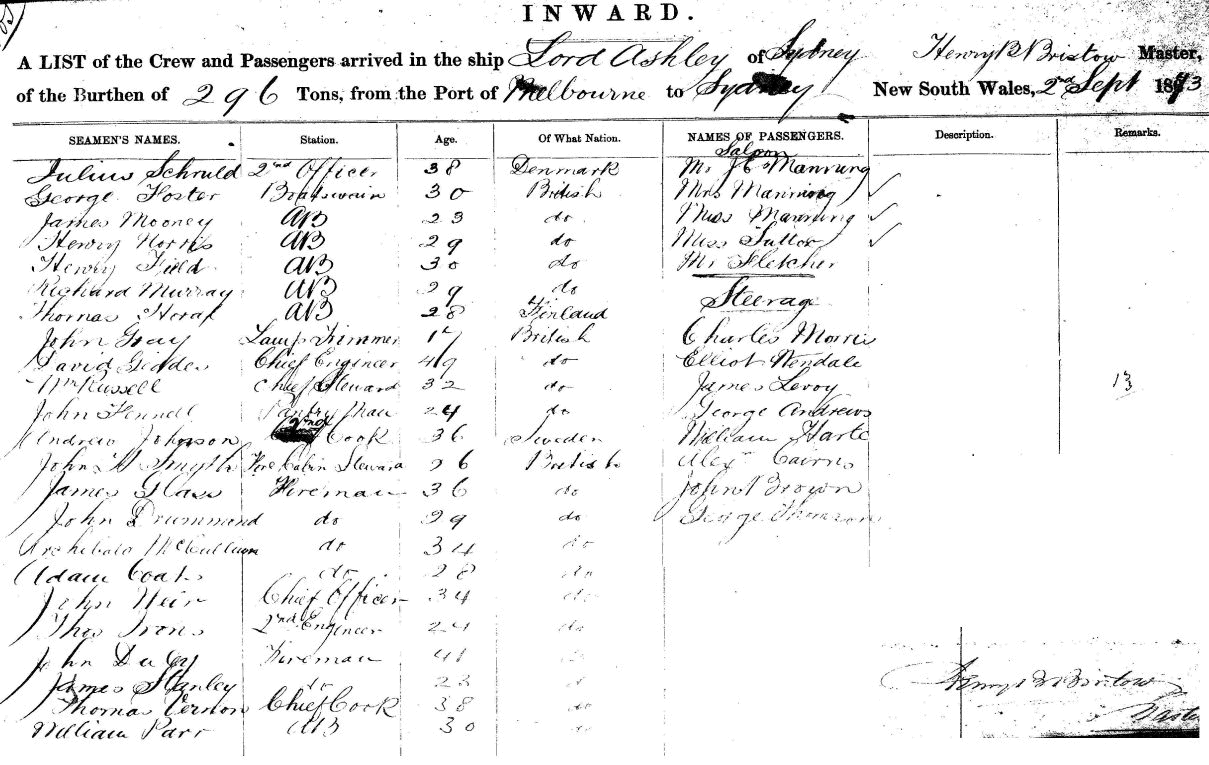 INWARD.
A LIST of the Crew and Passengers arrived in the ship Lord Ashley of Sydney Henry B Bristow Master,
of the Burthen of 296 Tons, from the Port of Melbourne to Sydney New South Wales, 2nd Sept 1873
SEAMEN'S NAMES. Station. Age. Of What Nation. NAMES OF PASSENGERS. Description. Remarks.
Saloon
Julius 2nd Officer 38 Denmark Mr Manning
George Foster Boatswain 30 British Mrs Manning
James Mooney AB 23 do Miss Manning
Henry Norris AB 29 do Miss
Henry Field AB 30 do Mr Fletcher
Richard Murray AB 29 do
Steerage
Thomas AB 28 Finland
John Gray Lamp Trimmer 17 British Charles Morris
David Chief Engineer 49 do Elliot
Wm Russell Chief Steward 32 do James Leroy 13
John Fennell Pantry Man 24 do George Andrews
Andrew Johnson 2nd Cook 36 Sweden William Harte
John Smyth Fore Cabin Steward 26 British Alexr Cairns
James Glass Fireman 36 do John Brown
John Drummond do 29 do George Thomson
Archibald McCullum do 34 do
Adam Coats do 28 do
John Weir Chief Officer 34 do
Thos Irons 2nd Engineer 24 do
John Fireman 41 do
James Stanley do 23 do
Thomas Vernon Chief Cook 38 do
William Parr AB 30 do
Henry B Bristow